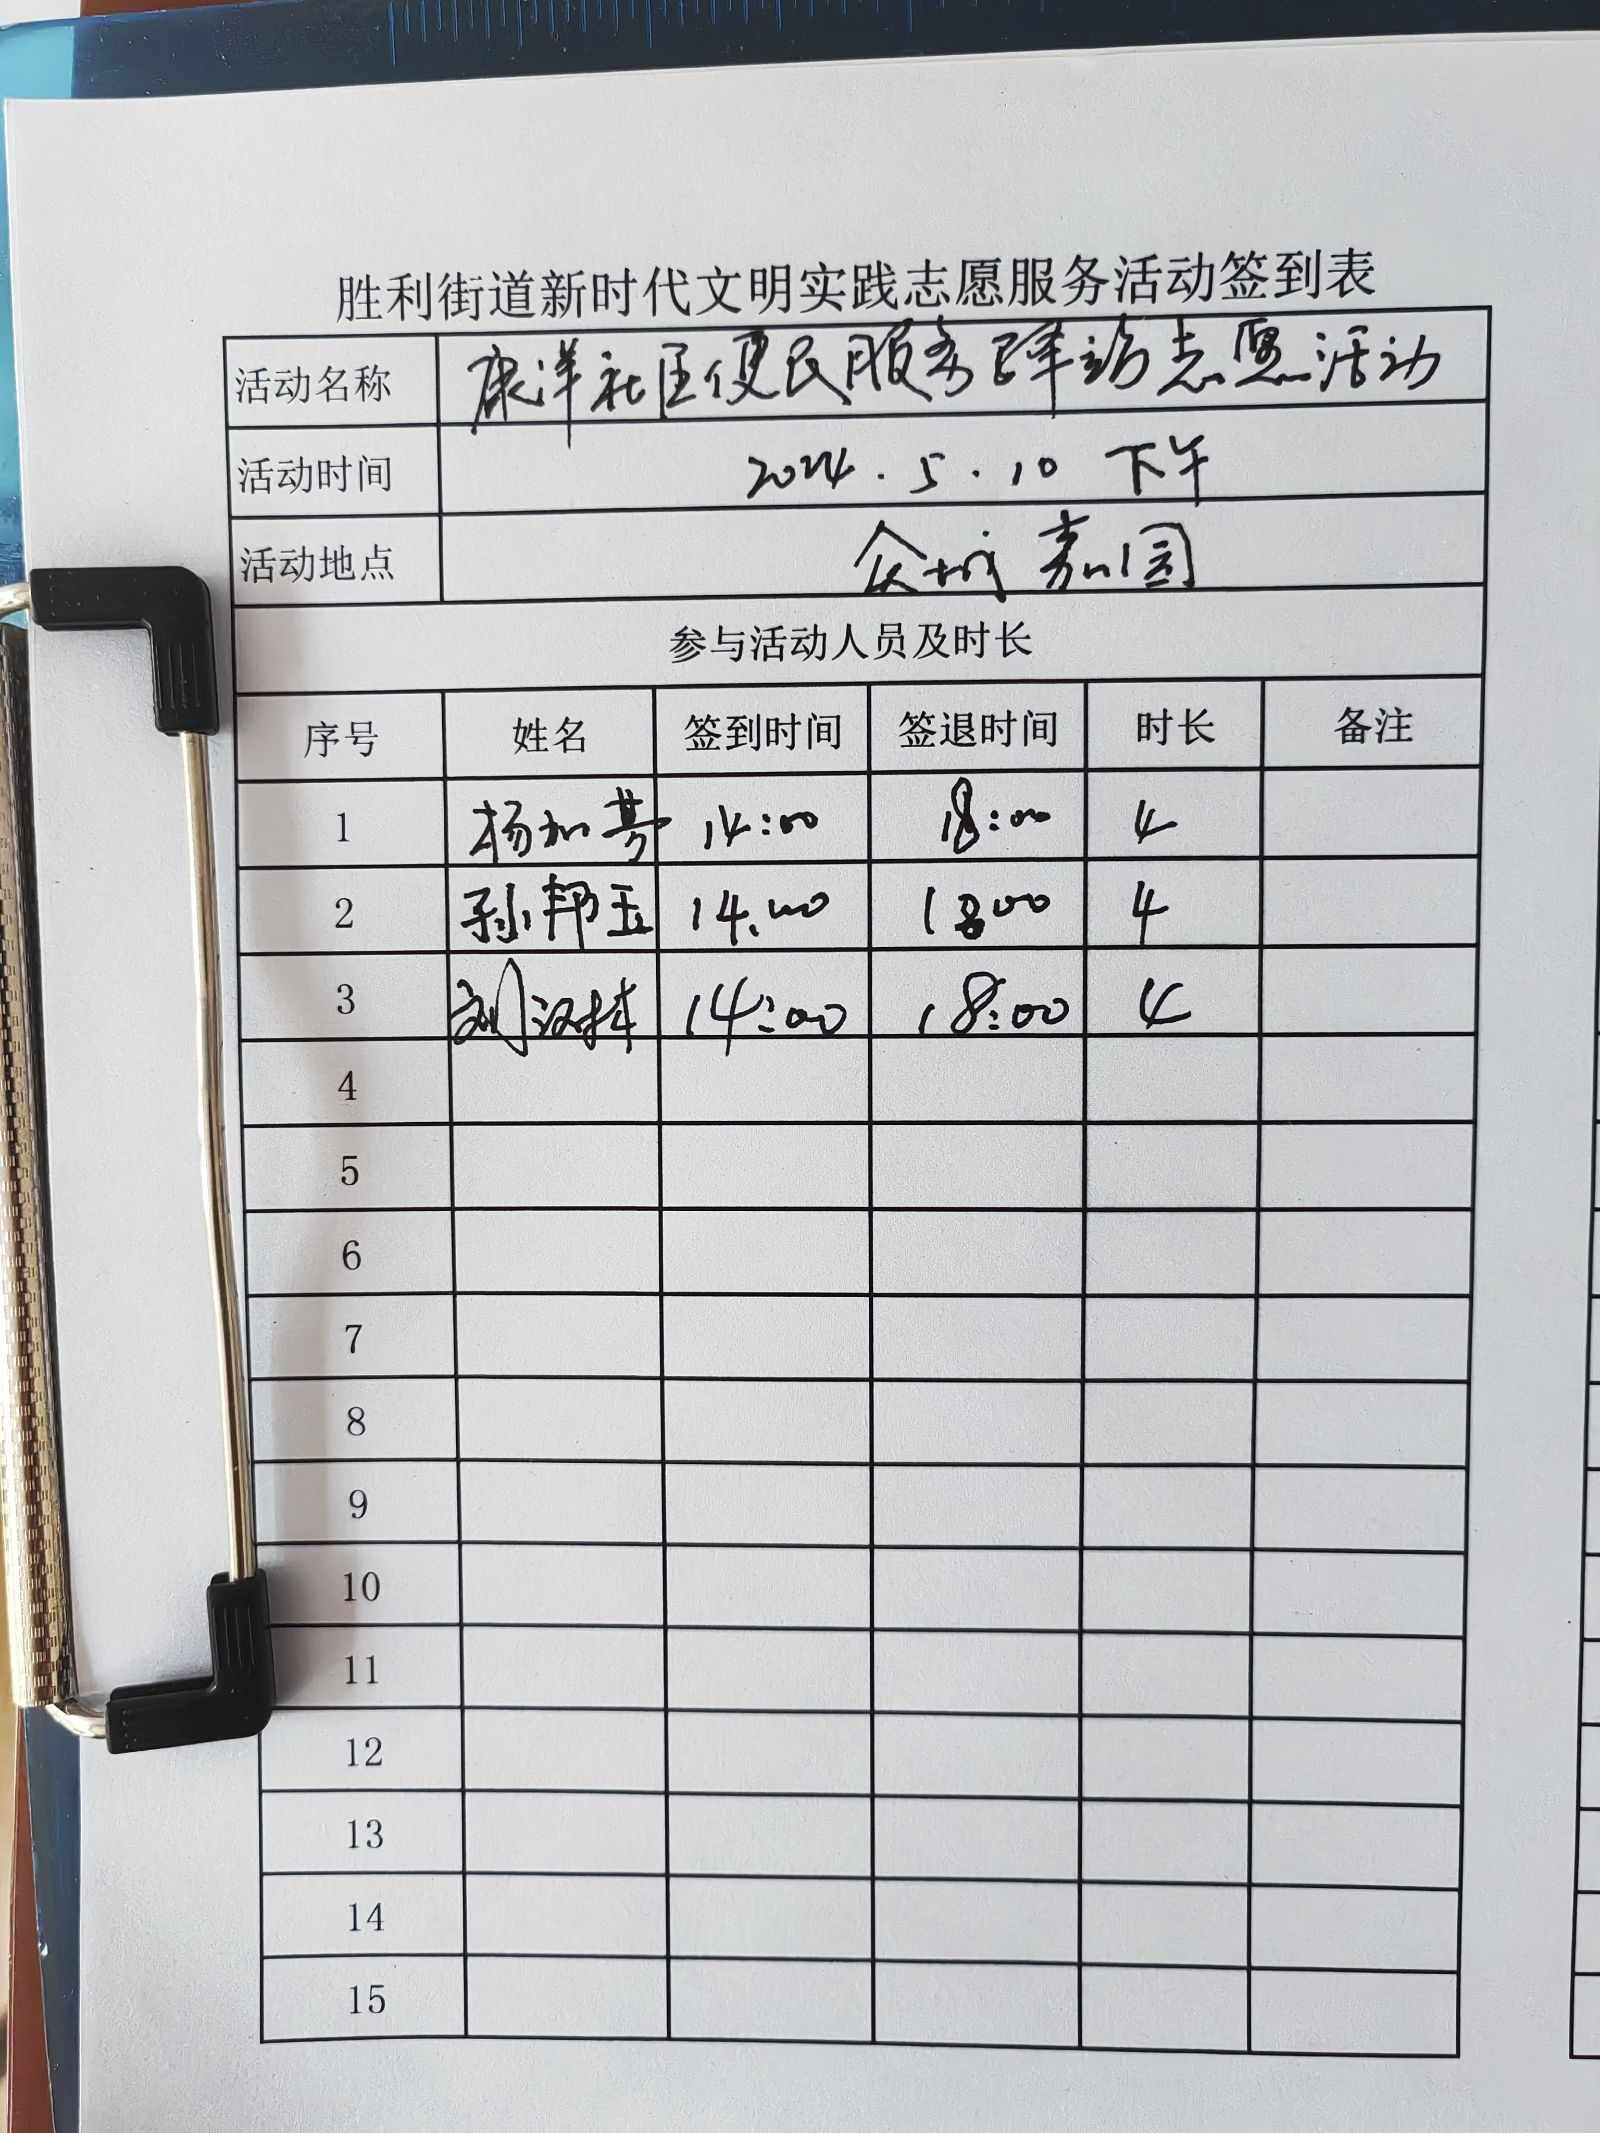 胜利街道新时代文明实践志愿服务活动签到表
活动名称 康洋社区便民服务群访志愿活动
活动时间 2024.5.10 下午
活动地点 众城嘉园
参与活动人员及时长
序号 姓名 签到时间 签退时间 时长 备注
1 杨加 14:00 18:00 4
2 孙邦玉 14:00 1800 4
3 刘汉林 14:00 18:00 4
4
5
6
7
8
9
10
11
12
13
14
15